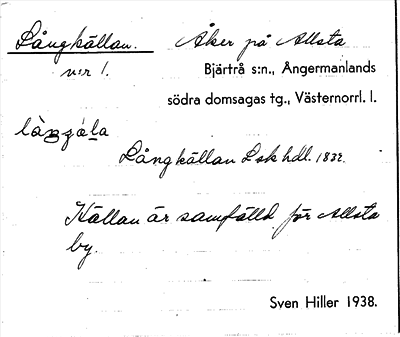 Långkällan. Åker på Allsta
n:r 1. Bjärtrå s:n., Ångermanlands
södra domsagas tg., Västernorrl. l.
Långkällan Lsk hdl. 1832.
Källan är samfälld för Allsta
by.
Sven Hiller 1938.